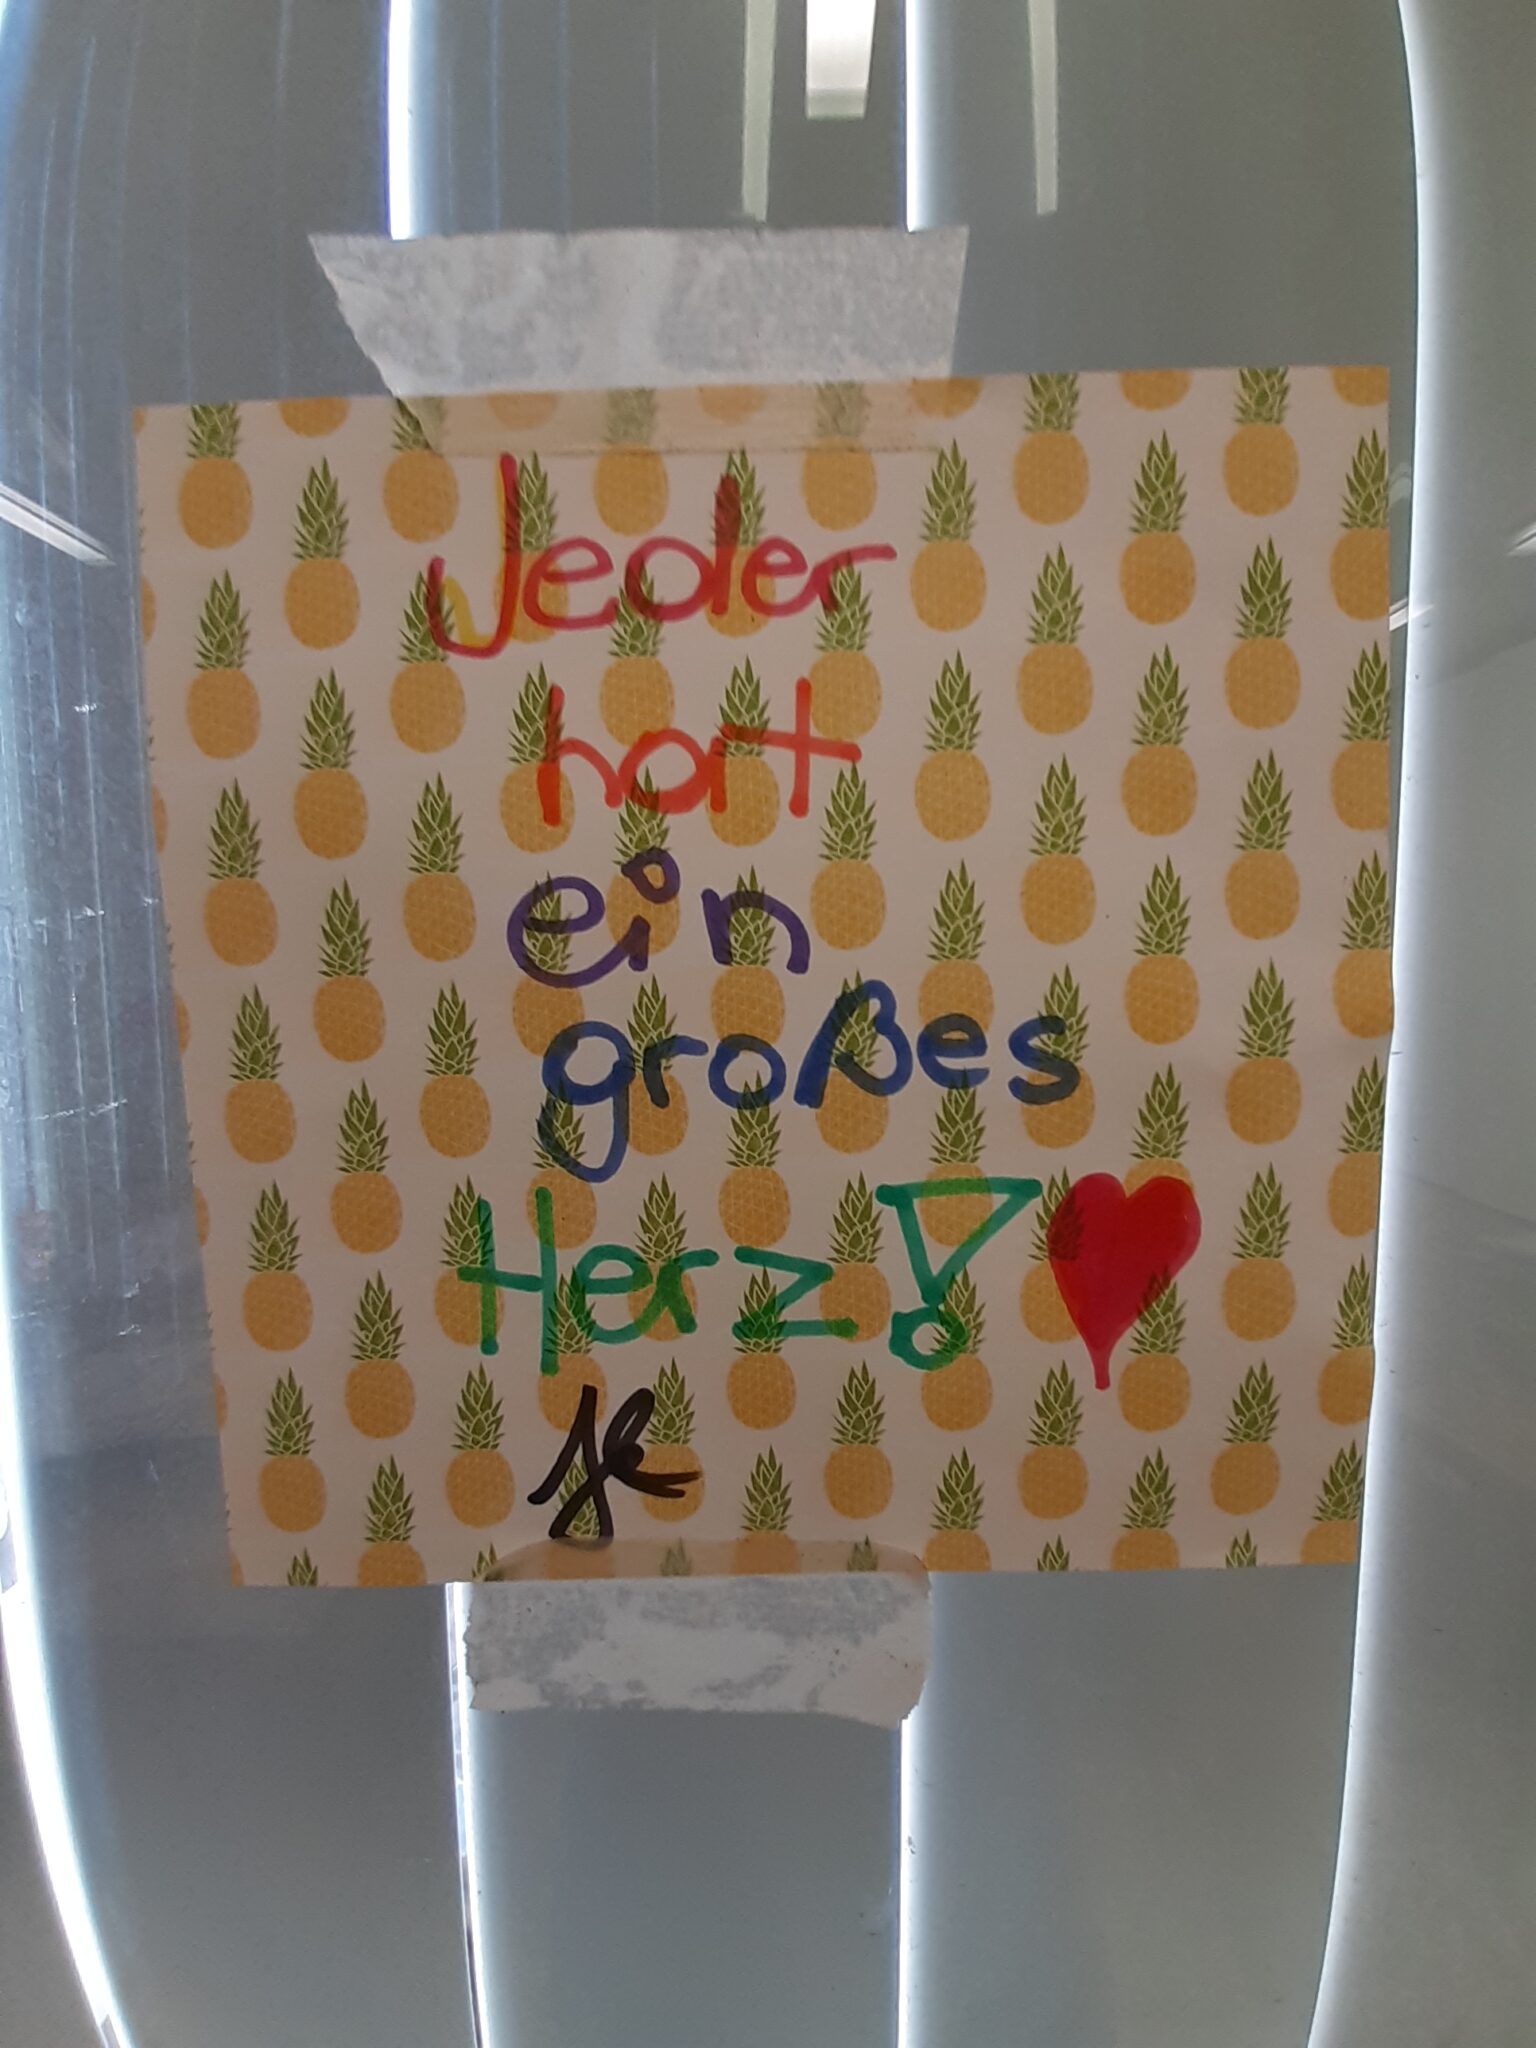 Jeder
hat
ein
großes
Herz!